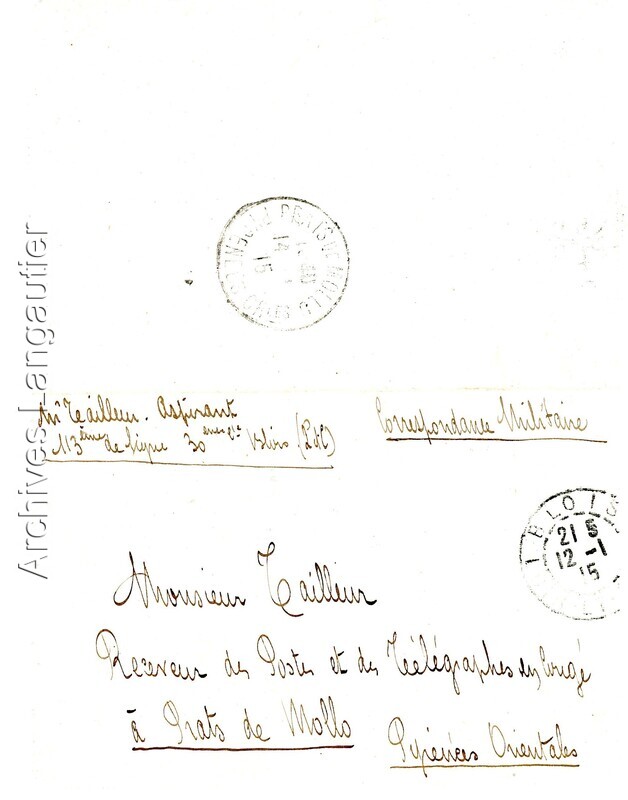 PRATS DE MOLLO
14
15
Tailleur. Aspirant
113ème de ligne 30ème Cie Blois (L&C)
Correspondance Militaire
BLOIS
21 5
12 -1
15
Monsieur Tailleur
Receveur des Postes et des Télégraphes en Congé
à Prats de Mollo
Pyrénées Orientales
Archives Langautier